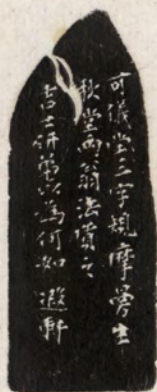 可儀堂三字規摩曼生
秋堂兩翁法質之
吉士研弟以為何如 軒